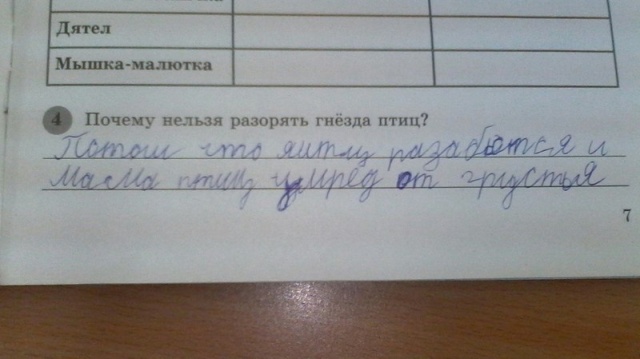 Дятел
Мышка-малютка
4 Почему нельзя разорять гнёзда птиц?
Потому что яитца разабьются и
мама птиц умрёд от грустья
7